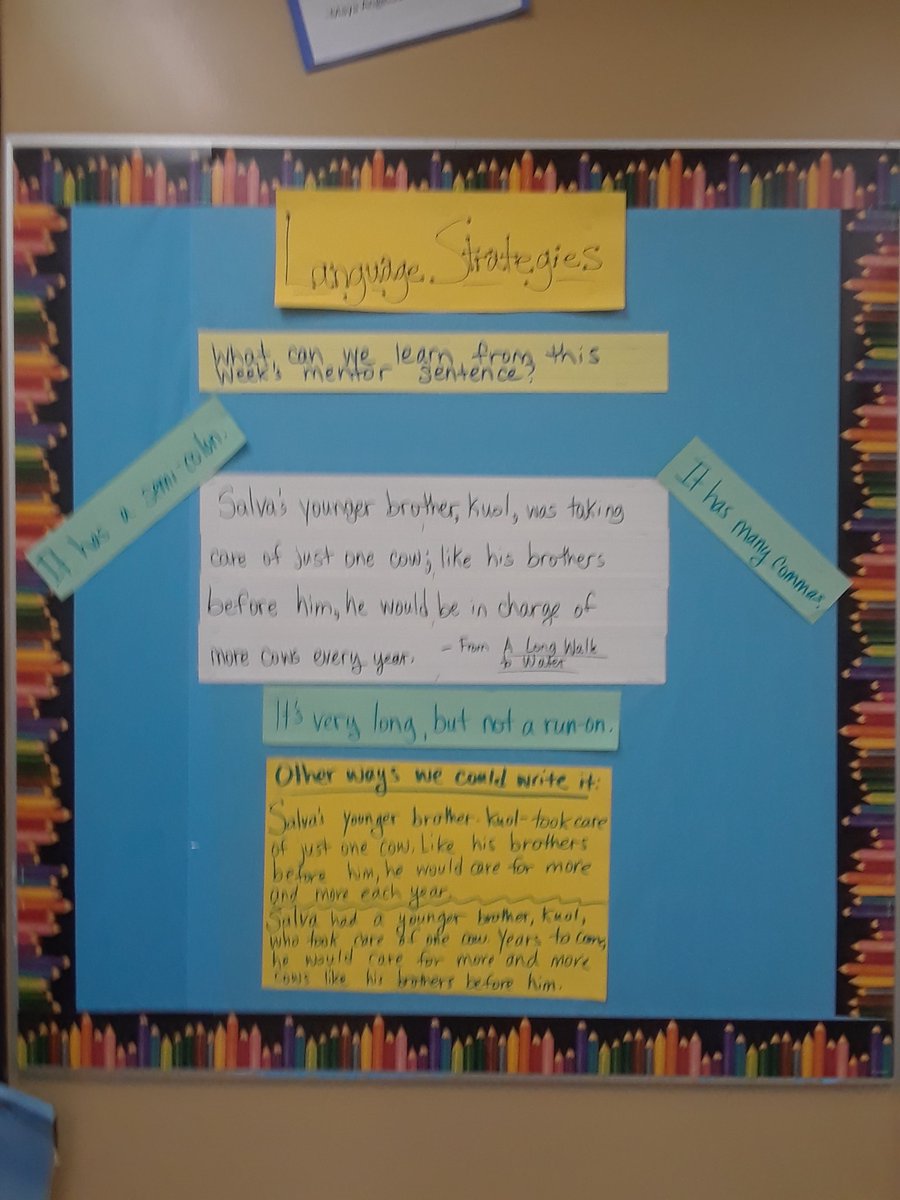 Language Strategies
What can we learn from this
week's mentor sentence?
It has a semi-colon.
It has many commas.
Salva's younger brother, Kuol, was taking
care of just one cow; like his brothers
before him, he would be in charge of
more cows every year. - From A Long Walk
to Water
It's very long, but not a run-on.
Other ways we could write it:
Salva's younger brother - Kuol - took care
of just one cow. Like his brothers
before him, he would care for more
and more each year.
Salva had a younger brother, Kuol,
who took care of one cow. Years to come,
he would care for more and more
cows like his brothers before him.